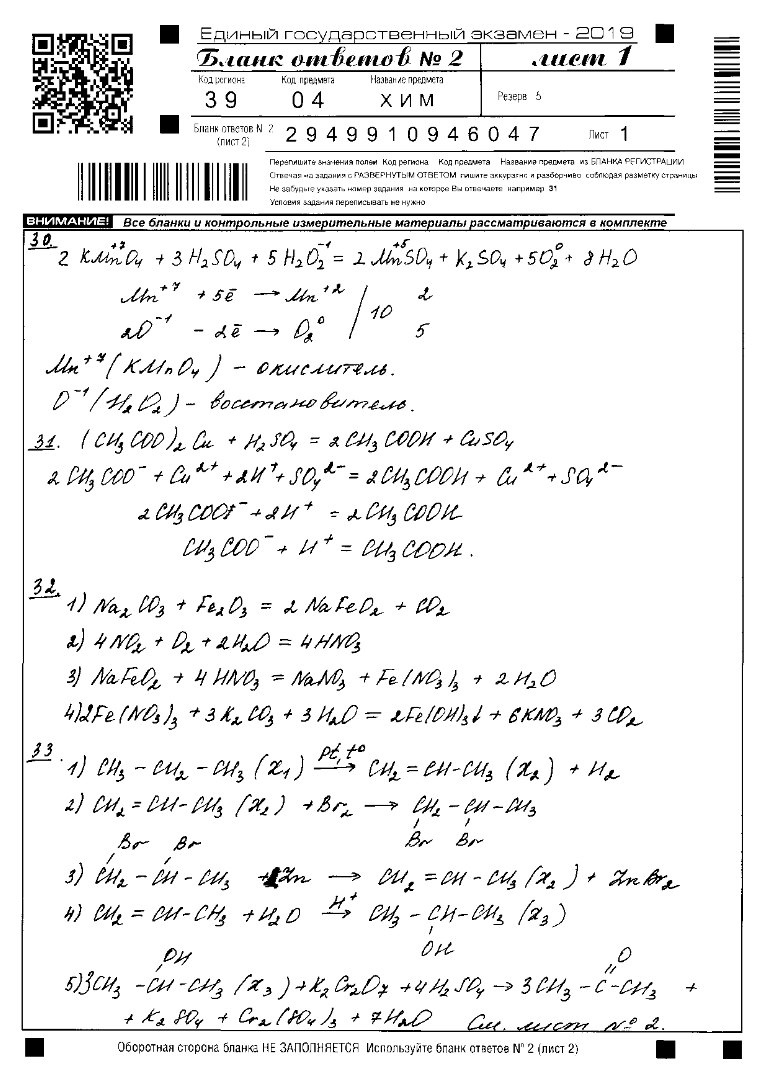 Единый государственный экзамен - 2019
Бланк ответов № 2 лист 1
Код региона Код предмета Название предмета
39 04 ХИМ Резерв 5
Бланк ответов № 2 (лист 2) 2949910946047 Лист 1
Перепишите значения полей Код региона Код предмета Название предмета из БЛАНКА РЕГИСТРАЦИИ
Отвечая на задания с РАЗВЕРНУТЫМ ОТВЕТОМ пишите аккуратно и разборчиво соблюдая разметку страницы
Не забудьте указать номер задания на которое Вы отвечаете например 31
Условия задания переписывать не нужно
ВНИМАНИЕ! Все бланки и контрольные измерительные материалы рассматриваются в комплекте
30.
+7 -1 +5 0
2 KMnO4 + 3 H2SO4 + 5 H2O2 = 2 MnSO4 + K2SO4 + 5O2 + 8 H2O
Mn+7 + 5ē → Mn+2 | 10 2
2O-1 - 2ē → O2 0 | 5
Mn+7 (KMnO4) – окислитель.
O-1 (H2O2) – восстановитель.
31. (CH3COO)2Cu + H2SO4 = 2CH3COOH + CuSO4
2CH3COO- + Cu2+ + 2H+ + SO4 2- = 2CH3COOH + Cu2+ + SO4 2-
2CH3COO- + 2H+ = 2CH3COOH
CH3COO- + H+ = CH3COOH.
32.
1) Na2CO3 + Fe2O3 = 2 NaFeO2 + CO2
2) 4NO2 + O2 + 2H2O = 4HNO3
3) NaFeO2 + 4HNO3 = NaNO3 + Fe(NO3)3 + 2H2O
4) 2Fe(NO3)3 + 3K2CO3 + 3H2O = 2Fe(OH)3↓ + 6KNO3 + 3CO2
33.
Pt, t°
1) CH3 – CH2 – CH3 (X1) → CH2 = CH-CH3 (X2) + H2
2) CH2 = CH-CH3 (X2) + Br2 → CH2 – CH – CH3
Br Br Br Br
3) CH2 – CH – CH3 + Zn → CH2 = CH – CH3 (X2) + ZnBr2
H+
4) CH2 = CH-CH3 + H2O → CH3 – CH-CH3 (X3)
OH
OH O
5) 3CH3 – CH-CH3 (X3) + K2Cr2O7 + 4H2SO4 → 3CH3 – C – CH3 +
+ K2SO4 + Cr2(SO4)3 + 7H2O См. лист № 2.
Оборотная сторона бланка НЕ ЗАПОЛНЯЕТСЯ Используйте бланк ответов № 2 (лист 2)